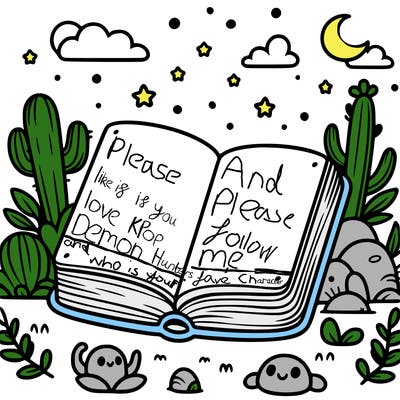 Please
like is is you
love KPop
Demon Hunters
and who is your fave Character
And
Please
follow
me